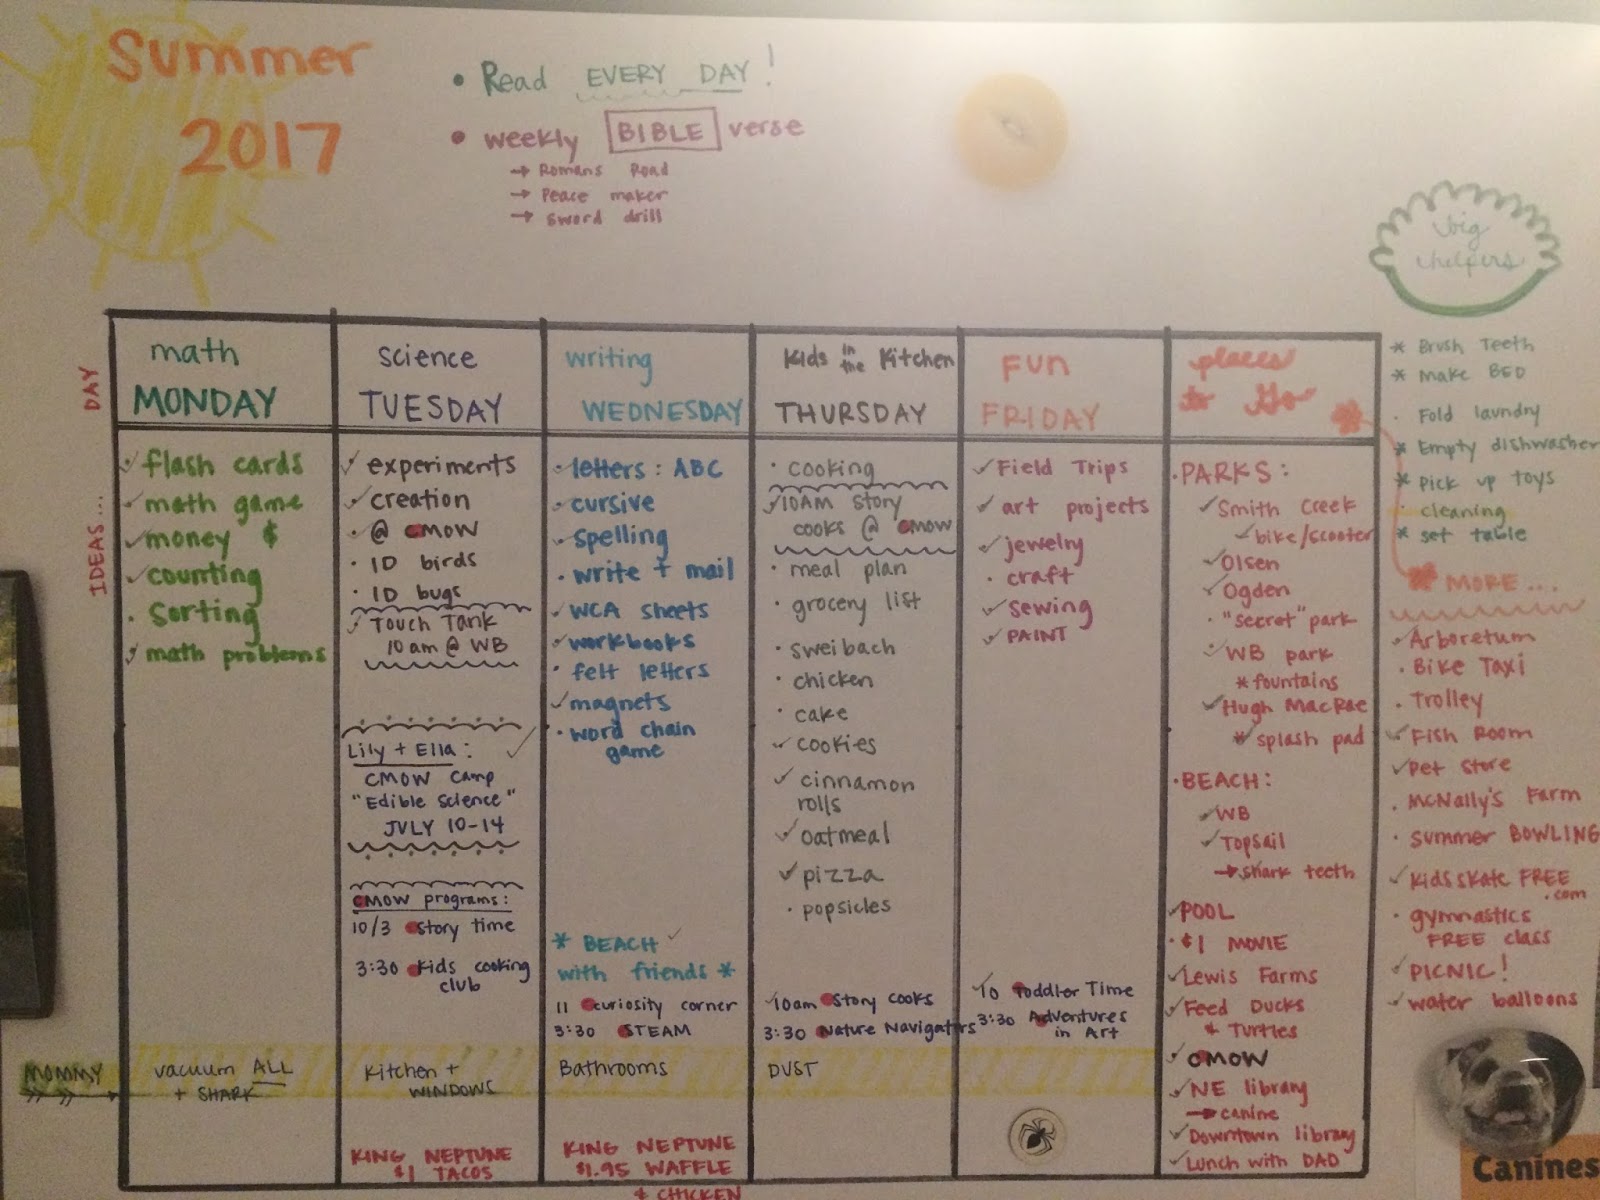 Summer
2017
• Read EVERY DAY!
• weekly BIBLE verse
→ Romans Road
→ Peace maker
→ sword drill
big
helpers
* Brush Teeth
* make BED
· Fold laundry
* Empty dishwasher
* Pick up toys
· cleaning
* set table
DAY
IDEAS...
math
MONDAY
✓ flash cards
✓ math game
✓ money $
✓ counting
· Sorting
✓ math problems
vacuum ALL
+ SHARK
science
TUESDAY
✓ experiments
✓ creation
✓ @ CMOW
· ID birds
· ID bugs
✓ Touch Tank
10am @ WB
Lily + Ella: ✓
CMOW Camp
"Edible Science"
JULY 10-14
CMOW programs:
10/3 Story time
3:30 Kids cooking
club
Kitchen +
WINDOWS
KING NEPTUNE
$1 TACOS
writing
WEDNESDAY
· letters: ABC
✓ cursive
✓ spelling
· write + mail
✓ WCA sheets
✓ workbooks
· felt letters
✓ magnets
· word chain
game
* BEACH ✓
with friends *
11 curiosity corner
3:30 STEAM
Bathrooms
KING NEPTUNE
$1.95 WAFFLE
& CHICKEN
Kids in the Kitchen
THURSDAY
· cooking
✓ 10AM Story
cooks @ CMOW
· meal plan
· grocery list
· sweibach
· chicken
· cake
✓ cookies
✓ cinnamon
rolls
✓ oatmeal
✓ pizza
· popsicles
10am Story Cooks
3:30 Nature Navigators
DUST
FUN
FRIDAY
✓ Field Trips
✓ art projects
✓ jewelry
· craft
✓ sewing
✓ PAINT
10 Toddler Time
3:30 Adventures
in Art
places
to Go
· PARKS:
✓ Smith Creek
✓ bike/scooter
✓ Olsen
✓ Ogden
· "secret" park
✓ WB park
* fountains
✓ Hugh MacRae
* splash pad
· BEACH:
✓ WB
✓ Topsail
→ shark teeth
✓ POOL
· $1 MOVIE
✓ Lewis Farms
✓ Feed Ducks
& Turtles
✓ CMOW
✓ NE library
→ canine
✓ Downtown library
✓ Lunch with DAD
MORE...
✓ Arboretum
· Bike Taxi
· Trolley
✓ Fish Room
✓ Pet store
· McNally's Farm
· summer BOWLING
✓ kidsskate FREE
.com
· gymnastics
FREE class
✓ PICNIC!
✓ water balloons
MOMMY
Canines